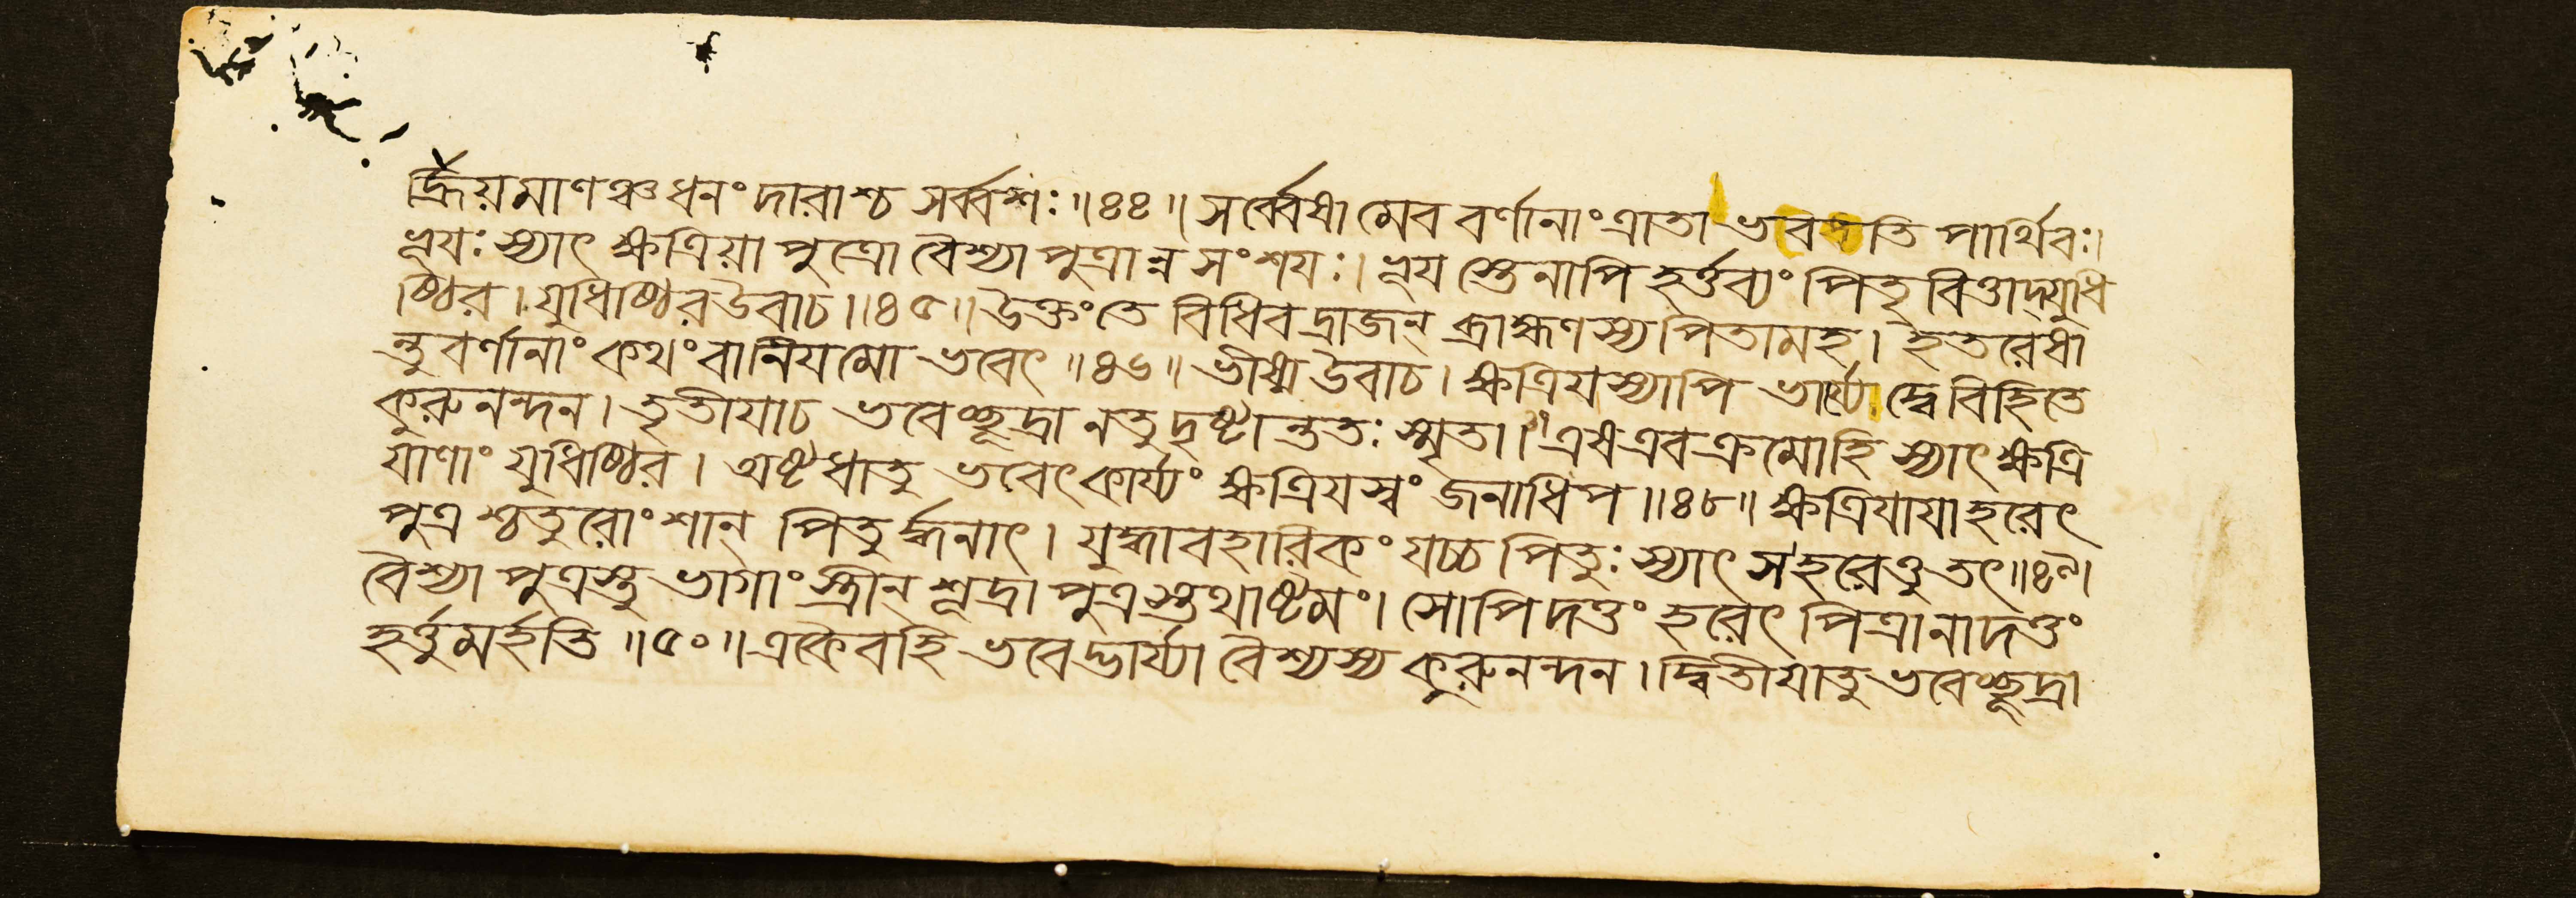 র্হ্রিয়মাণঞ্চ ধনং দারাশ্চ সর্ব্বশঃ ॥ ৪৪ ॥ সর্ব্বেষামেব বর্ণানাং ত্রাতা ভব তি পার্থিবঃ।
ভূযঃ স্যাৎ ক্ষত্রিয়া পুত্রো বৈশ্যা পুত্রান্ন সংশযঃ। ভূয স্তেনাপি হর্ত্তব্যং পিতৃ বিত্তাদ্যুধি
ষ্ঠির। যুধিষ্ঠির উবাচ ॥ ৪৫ ॥ উক্তং তে বিধিবদ্রাজন্ ব্রাহ্মণস্য পিতামহ। ইতরেষা
ন্তু বর্ণানাং কথং বা নিযমো ভবেৎ ॥ ৪৬ ॥ ভীষ্ম উবাচ। ক্ষত্রিযস্যাপি ভার্য্যে দ্বে বিহিতে
কুরুনন্দন। তৃতীযাচ ভবেচ্ছূদ্রা নতু দৃষ্টান্ততঃ স্মৃতা। এষ এব ক্রমোহি স্যাৎ ক্ষত্রি
যাণাং যুধিষ্ঠির। অষ্টধাতু ভবেৎ কার্য্যং ক্ষত্রিযস্বং জনাধিপ ॥ ৪৮ ॥ ক্ষত্রিযাযা হরেৎ
পুত্র শ্চতুরোংশান্ পিতুর্দ্ধনাৎ। যুদ্ধাবহারিকং যচ্চ পিতুঃ স্যাৎ স হরেত্তু তৎ ॥ ৪৯।
বৈশ্যা পুত্রস্তু ভাগাং স্ত্রীন্ শূদ্রা পুত্র স্তথাষ্টমং। সোপি দত্তং হরেৎ পিত্রা নাদত্তং
হর্ত্তুমর্হতি ॥ ৫০ ॥ একৈব হি ভবেদ্ভার্য্যা বৈশ্যস্য কুরুনন্দন। দ্বিতীযাতু ভবেচ্ছূদ্রা